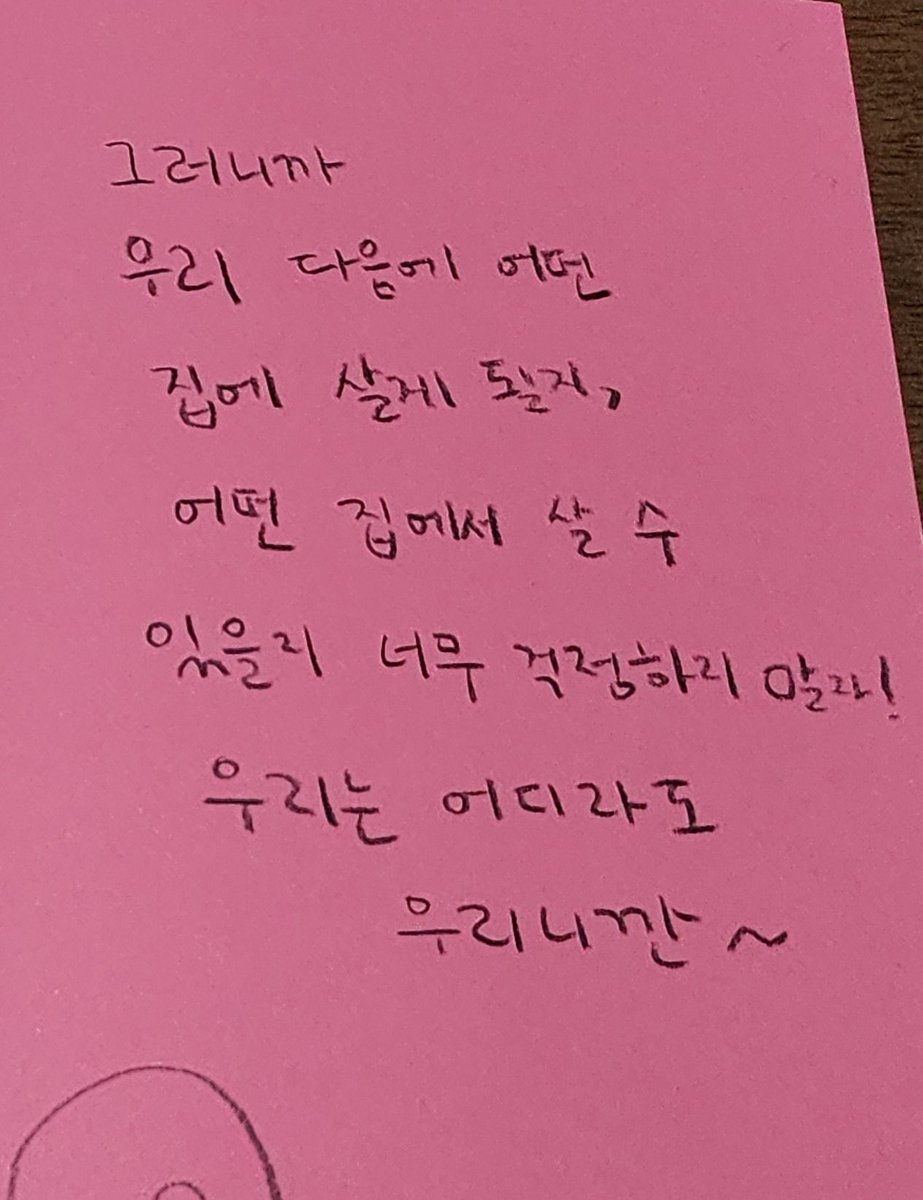 그러니까
우리 다음에 어떤
집에 살게 될지,
어떤 집에서 살 수
있을지 너무 걱정하지 말자!
우리는 어디라도
우리니깐~